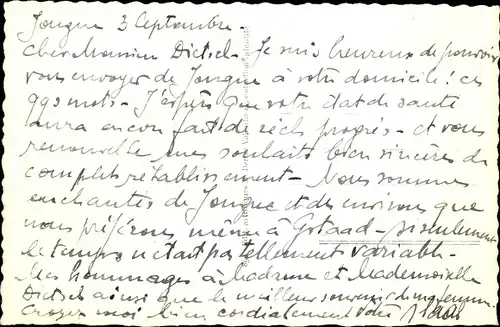 Jougne 3 Septembre -
Cher Monsieur Dietsel - Je suis heureux de pouvoir
vous envoyer de Jougne à votre domicile ! ces
qqs mots - J'espère que votre état de santé
aura encore fait de réels progrès - et vous
renouvelle mes souhaits bien sincères de
complet rétablissement - Nous sommes
enchantés de Jougne et des environs que
nous préférons même à Gstaad - si seulement
le temps n'était pas tellement variable -
Mes hommages à Madame et Mademoiselle
Dietsel ainsi que le meilleur souvenir de ma femme.
Croyez moi bien cordialement votre